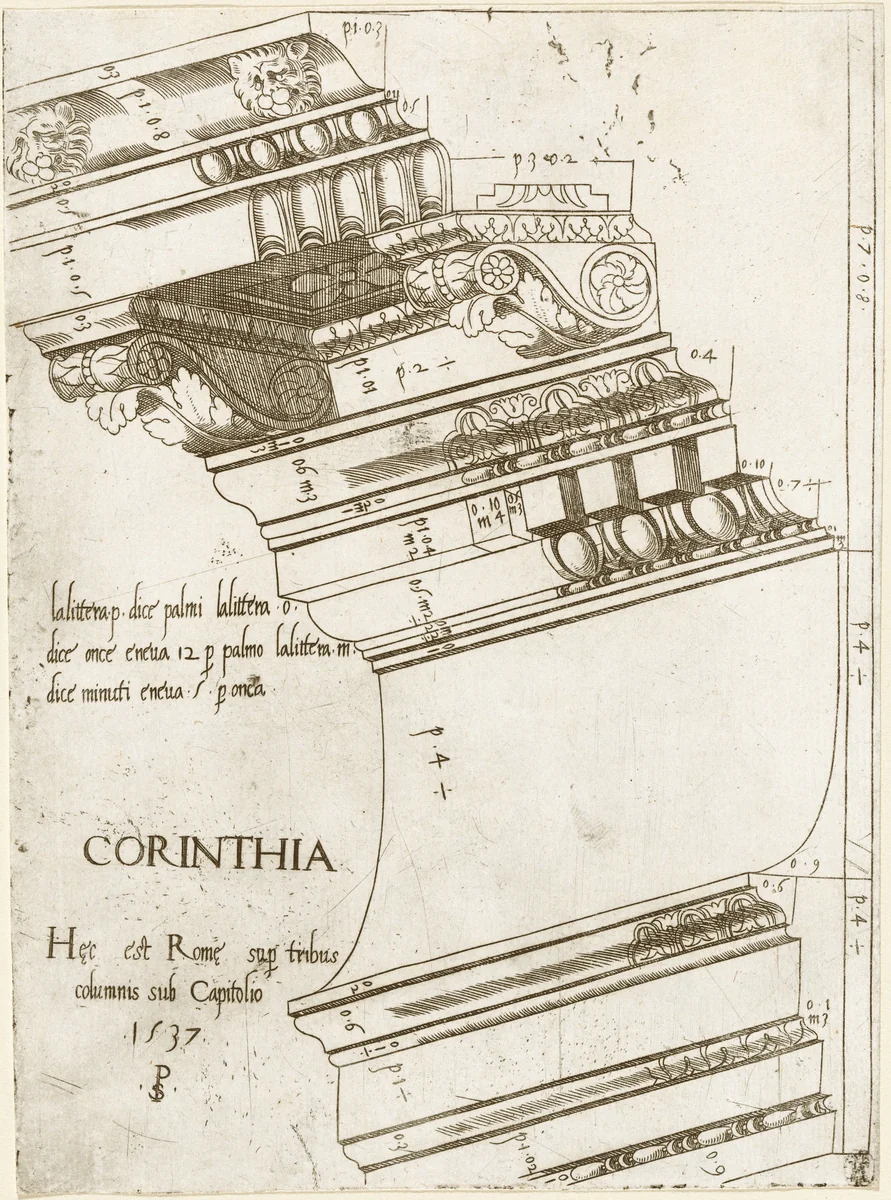 p.1.0.3
03
p.1.0.8
0.5
p 3 0.2
p.1.0.5
03
p 7.0.8.
p.1.01
p.2 ÷
0.4
06 m.3
0.10
0.7 ÷
0.10
m 4
p1.04
m 2
lalittera.p. dice palmi lalittera .o.
dice once eneua 12 p̱ palmo lalittera.m.
dice minuti eneua .5. p̱ onca.
p.4 ÷
p.4 ÷
CORINTHIA
0.9
0.6
p.4 ÷
Hęc est Romę sup̱ tribus
columnis sub Capitolio
.1537.
PS
02
0.6
0.1
m3
p1 ÷
0.3
p1.02
0.9